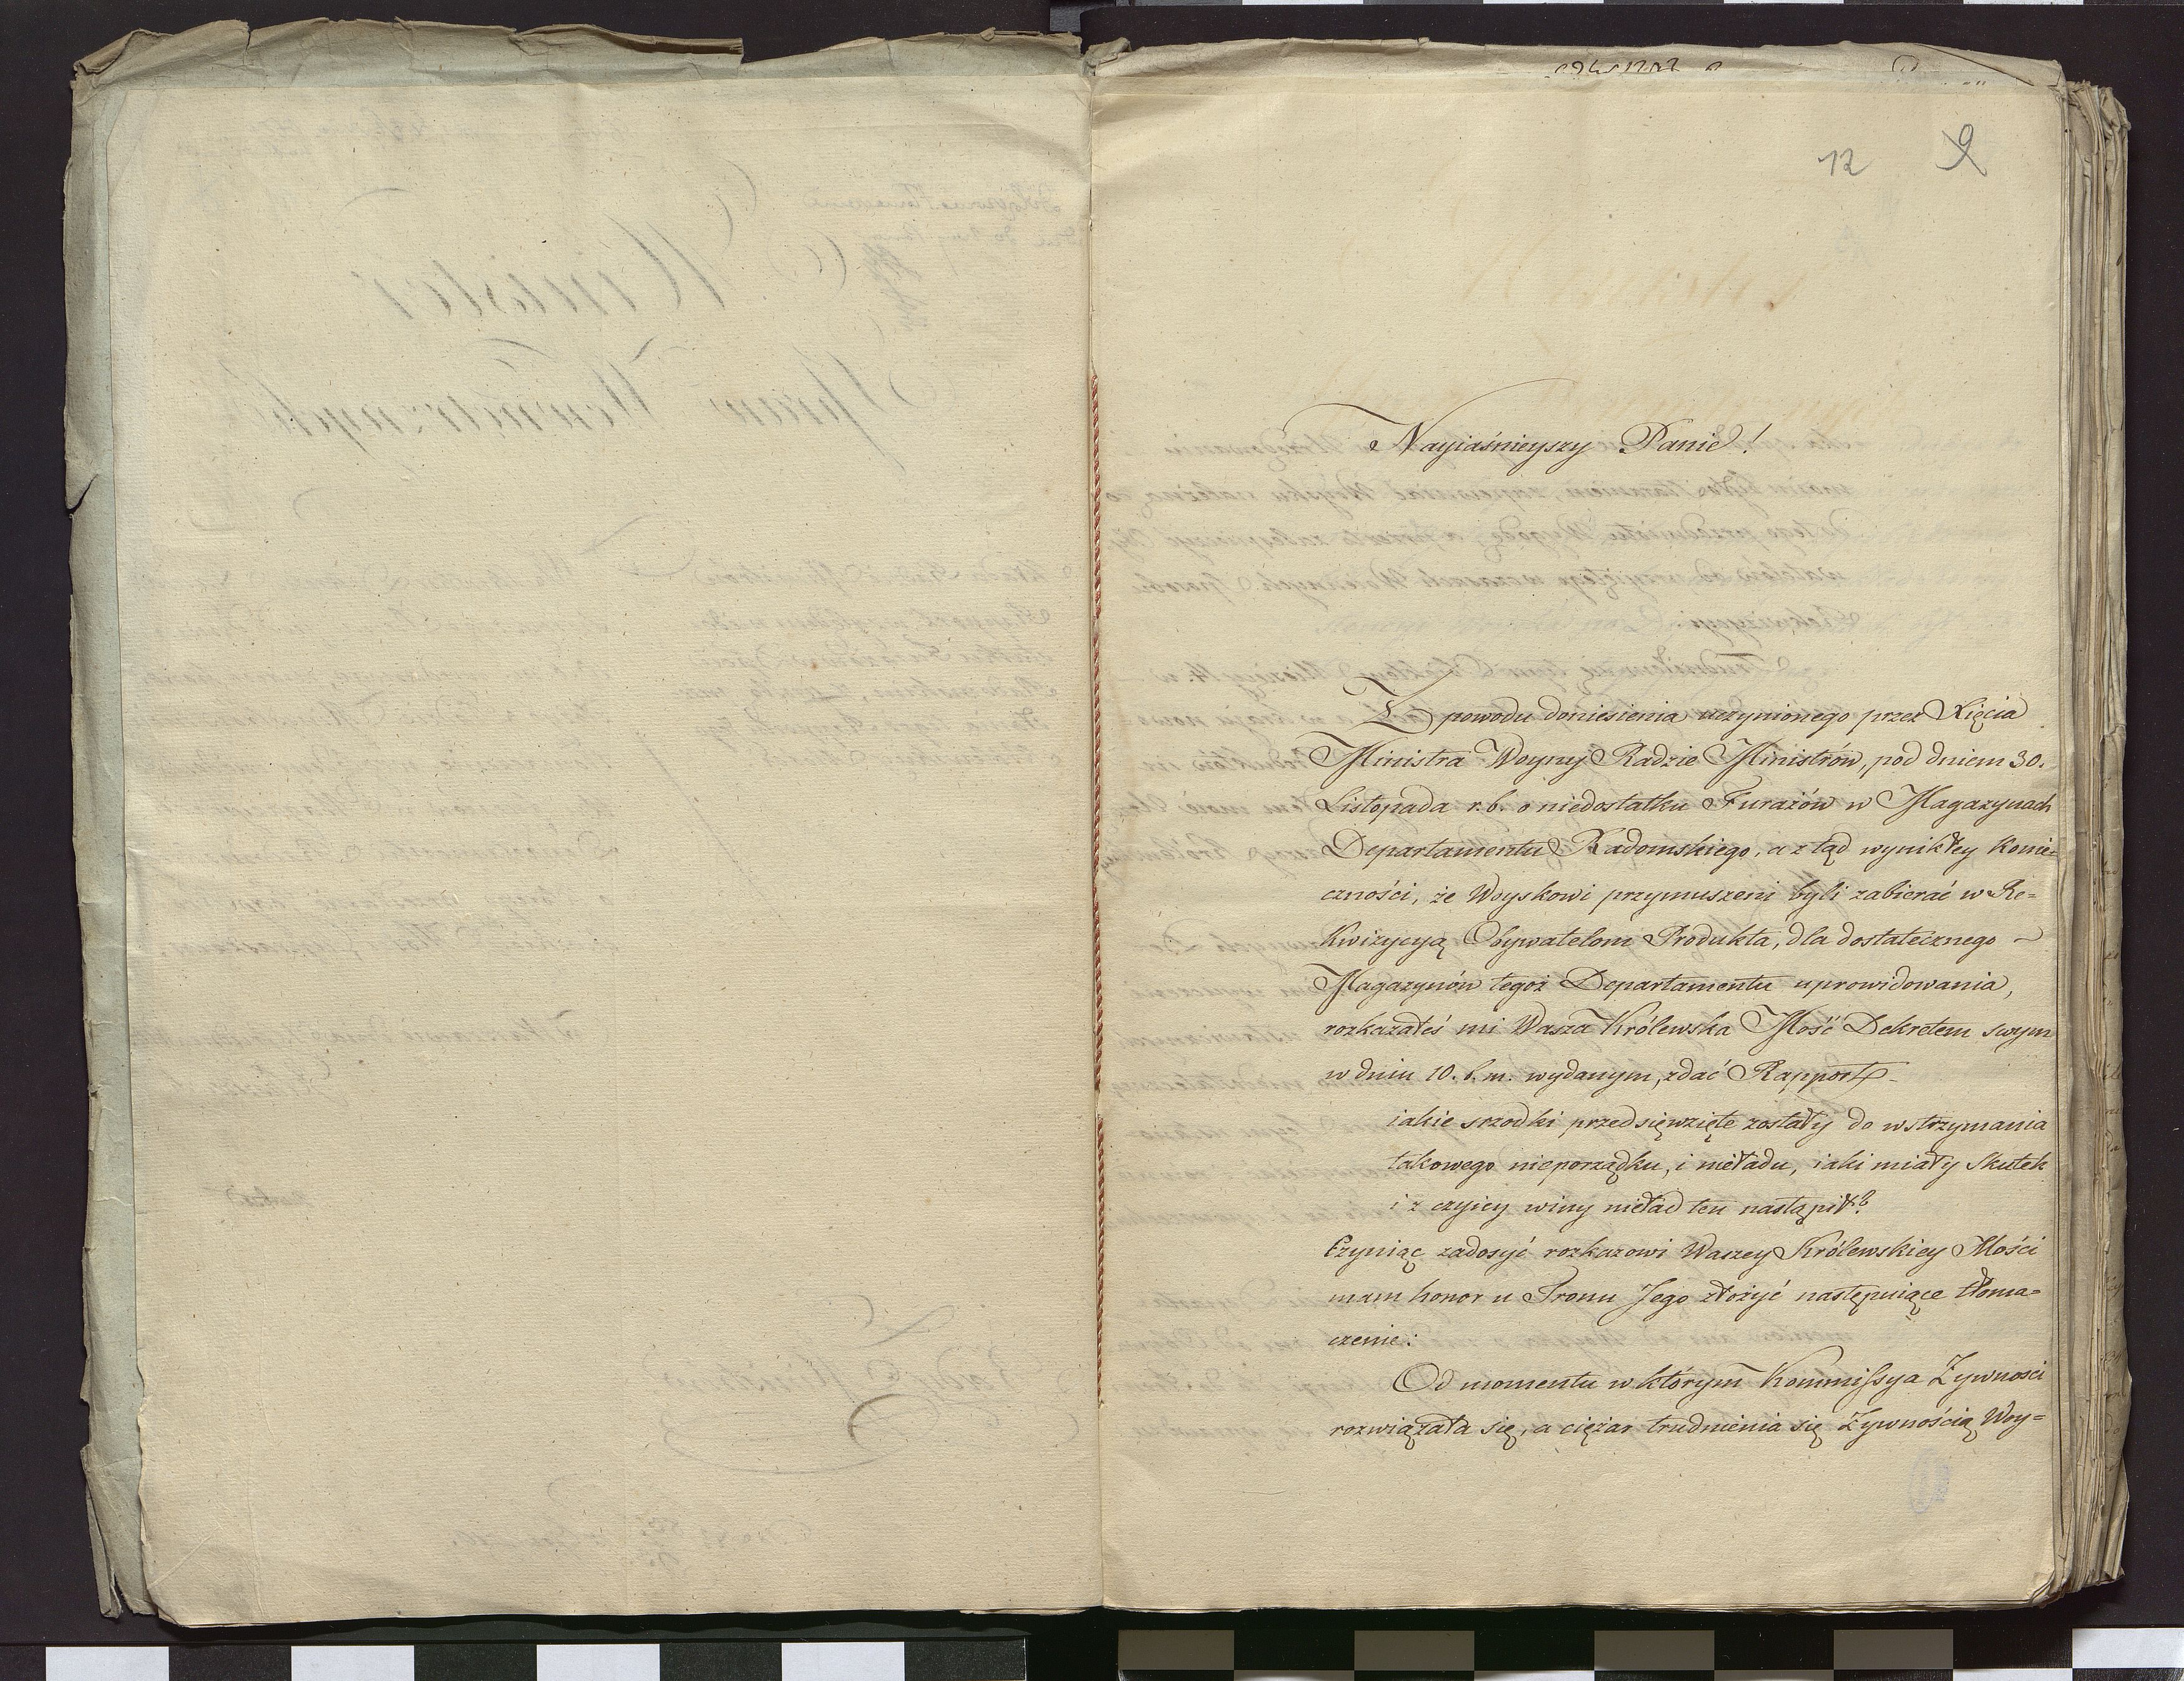 12 9
Nayiaśnieyszy Panie!
Z powodu doniesienia uczynionego przez Xięcia
Ministra Woyny Radzie Ministrów, pod dniem 30.
Listopada r.b. o niedostatku Furażów w Magazynach
Departamentu Radomskiego, a z tąd wynikłey konie=
czności, że Woyskowi przymuszeni byli zabierać w Re=
kwizycyą Obywatelom Produkta, dla dostatecznego
Magazynów tegoż Departamentu uprowidowania,
rozkazałeś mi Wasza Królewska Mość Dekretem swym
w dniu 10. b.m. wydanym, zdać Rapport
iakie srzodki przedsięwzięte zostały do wstrzymania
takowego nieporządku, i nieładu, iaki miały skutek
i z czyiey winy nieład ten nastąpił?
Czyniąc zadosyć rozkazowi Waszey Królewskiey Mości
mam honor u Tronu Jego złożyć następuiące tłoma=
czenie:
Od momentu w którym Kommissya Żywnosci
rozwiązała się, a ciężar trudnienia się Żywnością Woy=